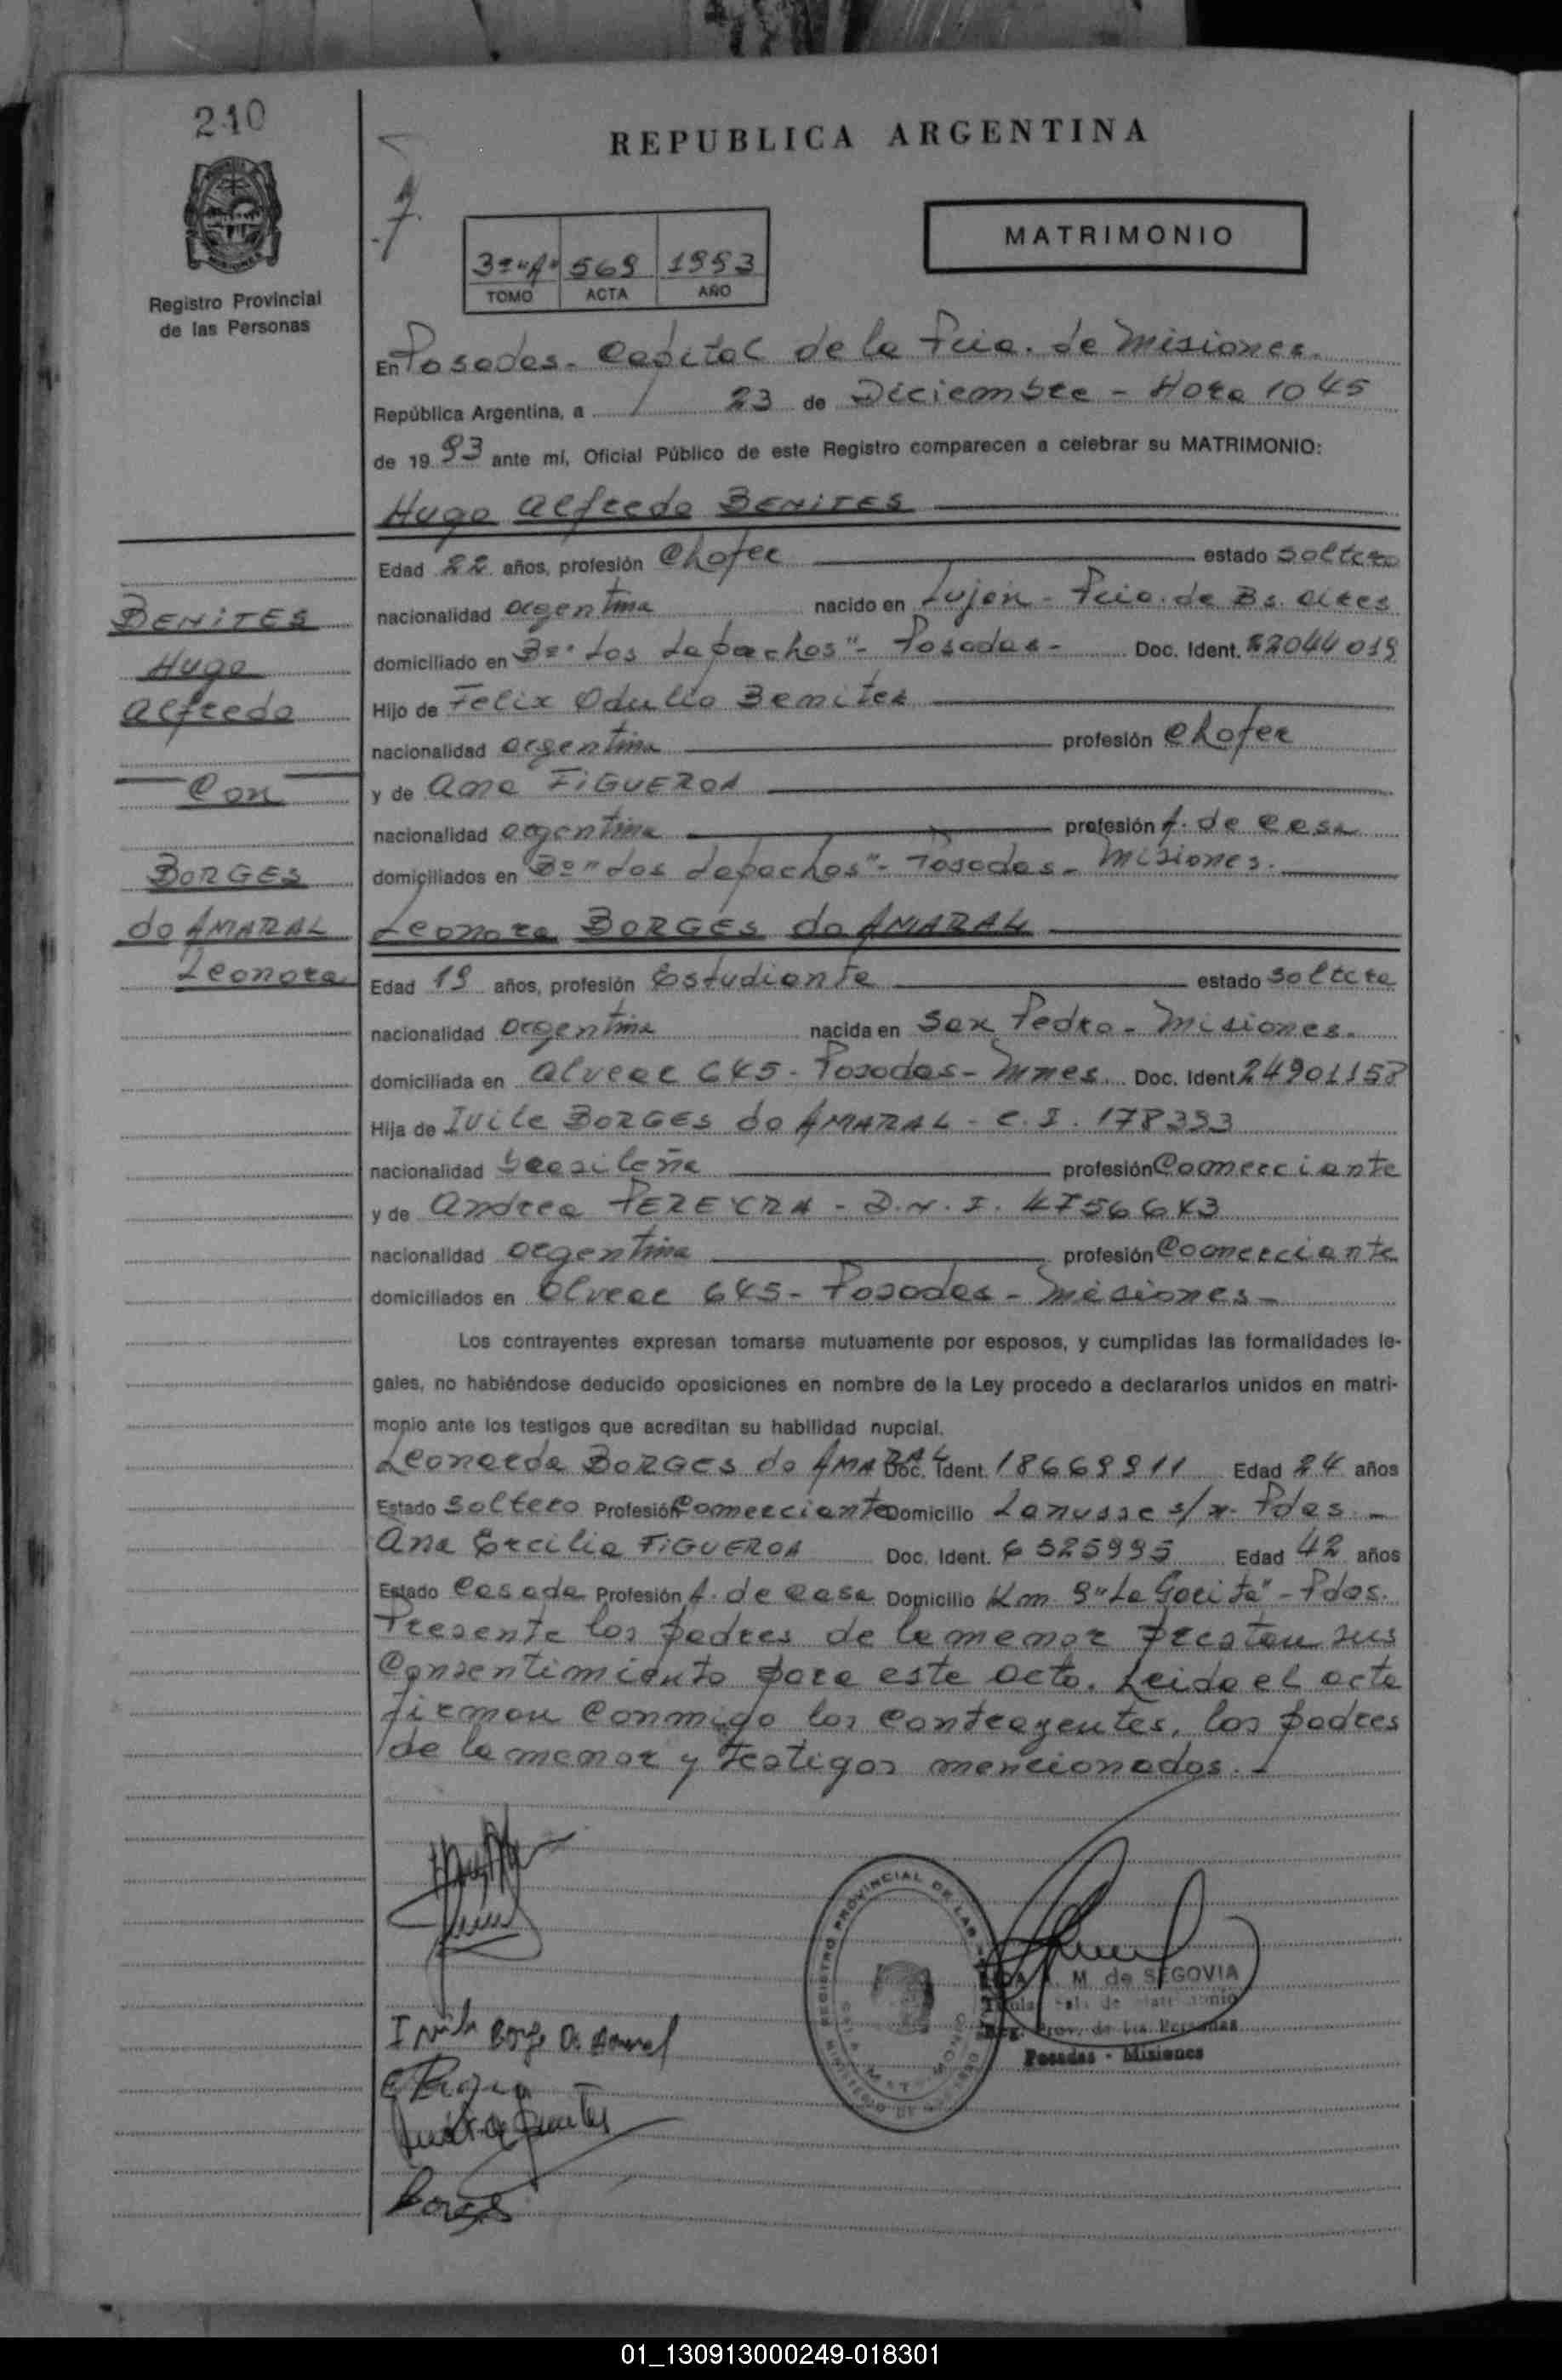 210
REPUBLICA ARGENTINA
MATRIMONIO
3º "A" 569 1993
TOMO ACTA AÑO
Registro Provincial
de las Personas
En Posadas - Capital de la Pcia. de Misiones.
República Argentina, a 23 de Diciembre - Hora 10 45
de 1993 ante mí, Oficial Público de este Registro comparecen a celebrar su MATRIMONIO:
Hugo Alfredo BENITES
Edad 22 años, profesión Chofer estado soltero
nacionalidad argentina nacido en Luján - Pcia. de Bs. Aires
domiciliado en Bº "Los Lapachos" - Posadas - Doc. Ident. 22044019
Hijo de Felix Odulio Benites
nacionalidad argentina profesión chofer
y de Ana FIGUEROA
nacionalidad argentina profesión A. de casa
domiciliados en Bº "Los Lapachos" - Posadas - Misiones.
BENITES
Hugo
Alfredo
Con
BORGES
do AMARAL
Leonora
Leonora BORGES do AMARAL
Edad 19 años, profesión Estudiante estado soltera
nacionalidad argentina nacida en San Pedro - Misiones.
domiciliada en Alvear 645 - Posadas - Mnes. Doc. Ident 24901158
Hija de BORGES do AMARAL - C.I. 178393
nacionalidad brasileña profesión Comerciante
y de Andrea PEREYRA - D.N.I. 4756643
nacionalidad argentina profesión Comerciante
domiciliados en Alvear 645 - Posadas - Misiones -
Los contrayentes expresan tomarse mutuamente por esposos, y cumplidas las formalidades le-
gales, no habiéndose deducido oposiciones en nombre de la Ley procedo a declararlos unidos en matri-
monio ante los testigos que acreditan su habilidad nupcial.
Leonardo BORGES do AMARAL Doc. Ident. 18669911 Edad 24 años
Estado soltero Profesión Comerciante Domicilio Lanusse s/n. Pdas. -
Ana Ercilia FIGUEROA Doc. Ident. 6525995 Edad 42 años
Estado Casada Profesión A. de casa Domicilio Km. 9 "La Garita" - Pdas.
Presente los padres de la menor prestan sus
Consentimiento para este acto. Leida el acta
firman conmigo los contrayentes, los padres
de la menor y testigos mencionados. -
REGISTRO PROVINCIAL DE LAS
M. de SEGOVIA
Reg. Prov. de las Personas
Posadas - Misiones
Borges
01_130913000249-018301